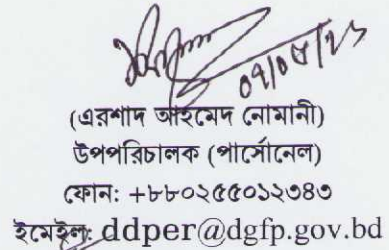 (এরশাদ আহমেদ নোমানী)
উপপরিচালক (পার্সোনেল)
ফোন: +৮৮০২৫৫০১২৩৪৩
ইমেইল: ddper@dgfp.gov.bd